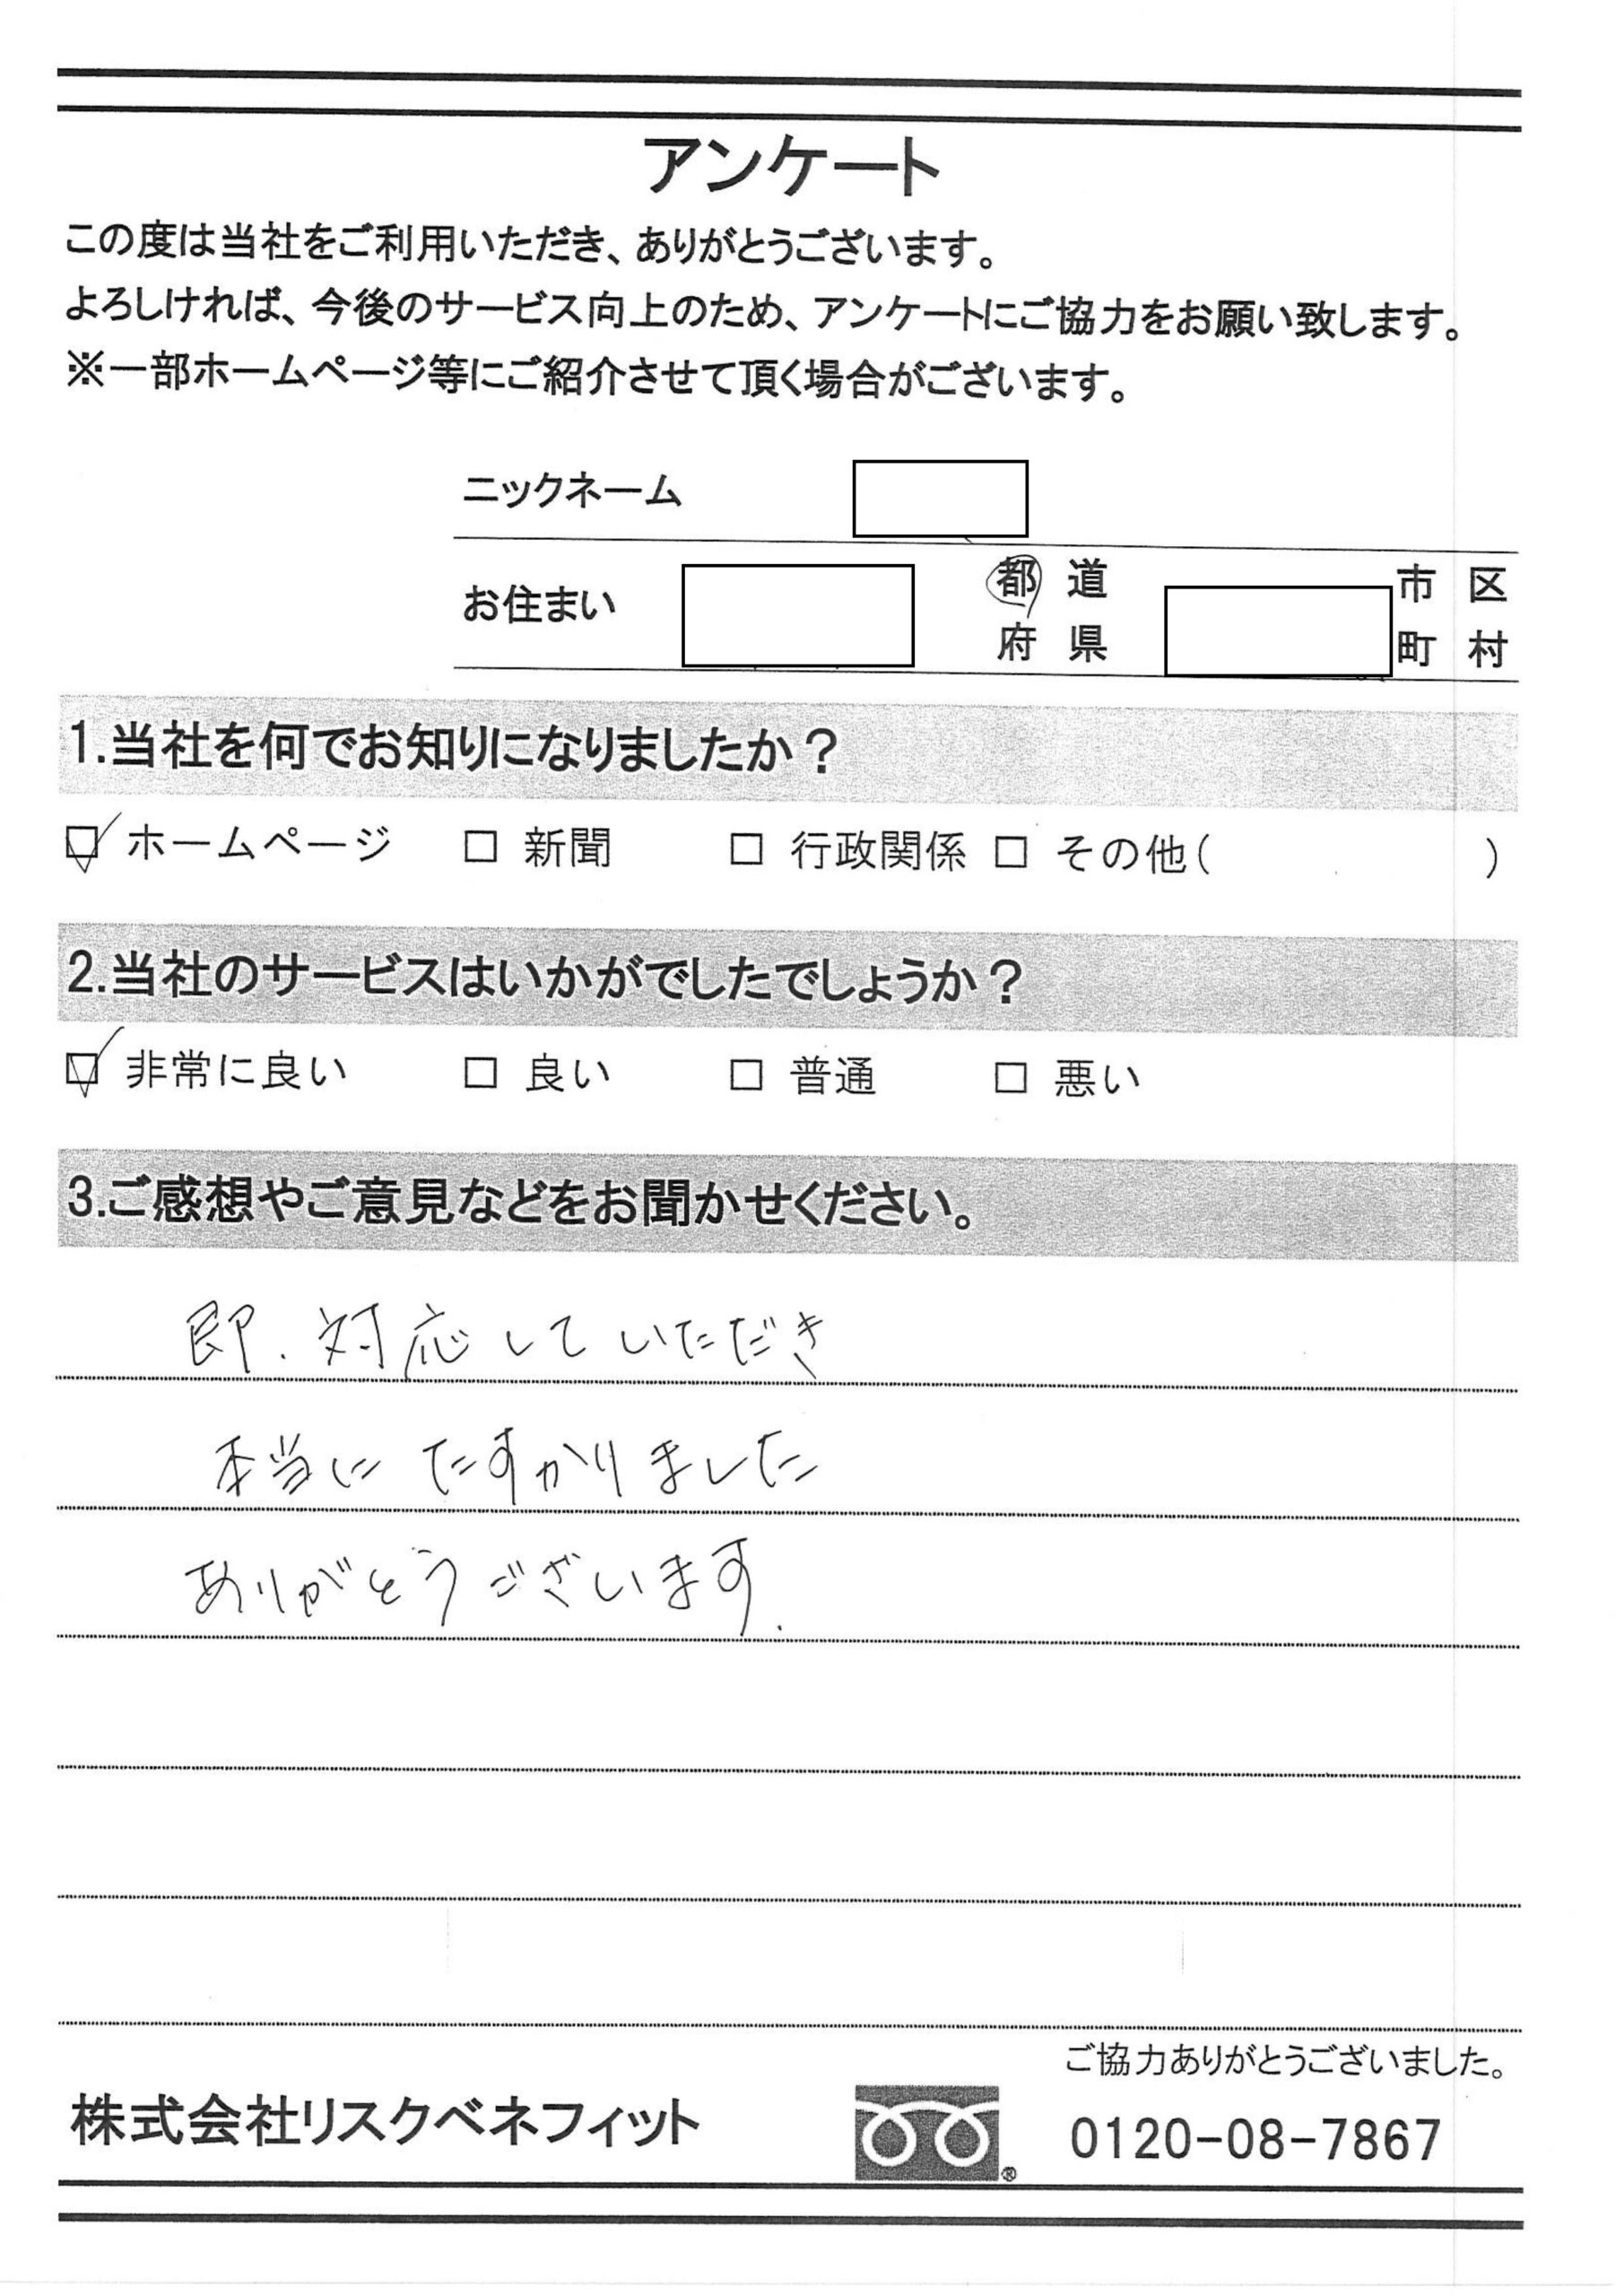 アンケート
この度は当社をご利用いただき、ありがとうございます。
よろしければ、今後のサービス向上のため、アンケートにご協力をお願い致します。
※一部ホームページ等にご紹介させて頂く場合がございます。
ニックネーム
お住まい 都 道 府 県 市 区 町 村
1.当社を何でお知りになりましたか？
☑ ホームページ □ 新聞 □ 行政関係 □ その他( )
2.当社のサービスはいかがでしたでしょうか？
☑ 非常に良い □ 良い □ 普通 □ 悪い
3.ご感想やご意見などをお聞かせください。
即.対応していただき
本当にたすかりました
ありがとうございます.
ご協力ありがとうございました。
株式会社リスクベネフィット ® 0120-08-7867